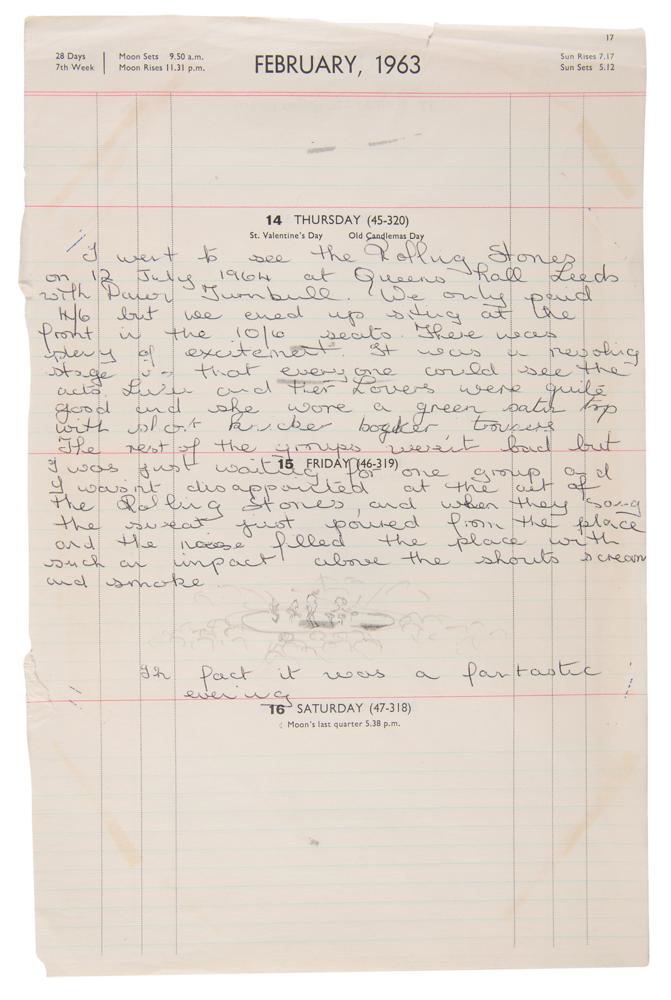 17
28 Days Moon Sets 9.50 a.m. FEBRUARY, 1963 Sun Rises 7.17
7th Week Moon Rises 11.31 p.m. Sun Sets 5.12
14 THURSDAY (45-320)
St. Valentine's Day Old Candlemas Day
I went to see the Rolling Stones
on 12 July 1964 at Queens hall Leeds
with Turnbull. We only paid
4/6 but we ened up siting at the
front in the 10/6 seats. There was
of excitement. It was a revolving
stage that everyone could see the
acts. and Lovers were quite
good and she wore a green satin top
with short trousers
The rest of the groups weren't bad but
I was just waiting for one group and
15 FRIDAY (46-319)
I wasn't disappointed at the act of
the Rolling Stones, and when they sang
the sweat just poured from the place
and the noise filled the place with
such an impact above the shouts scream
and smoke
In fact it was a fantastic
evening
16 SATURDAY (47-318)
Moon's last quarter 5.38 p.m.